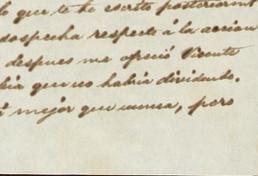 lo que te he escrito posteriorm
sospecha respecto á la accion
despues me ofreció Vicente
bia que no habia dividendo.
mejor que nunca, pero